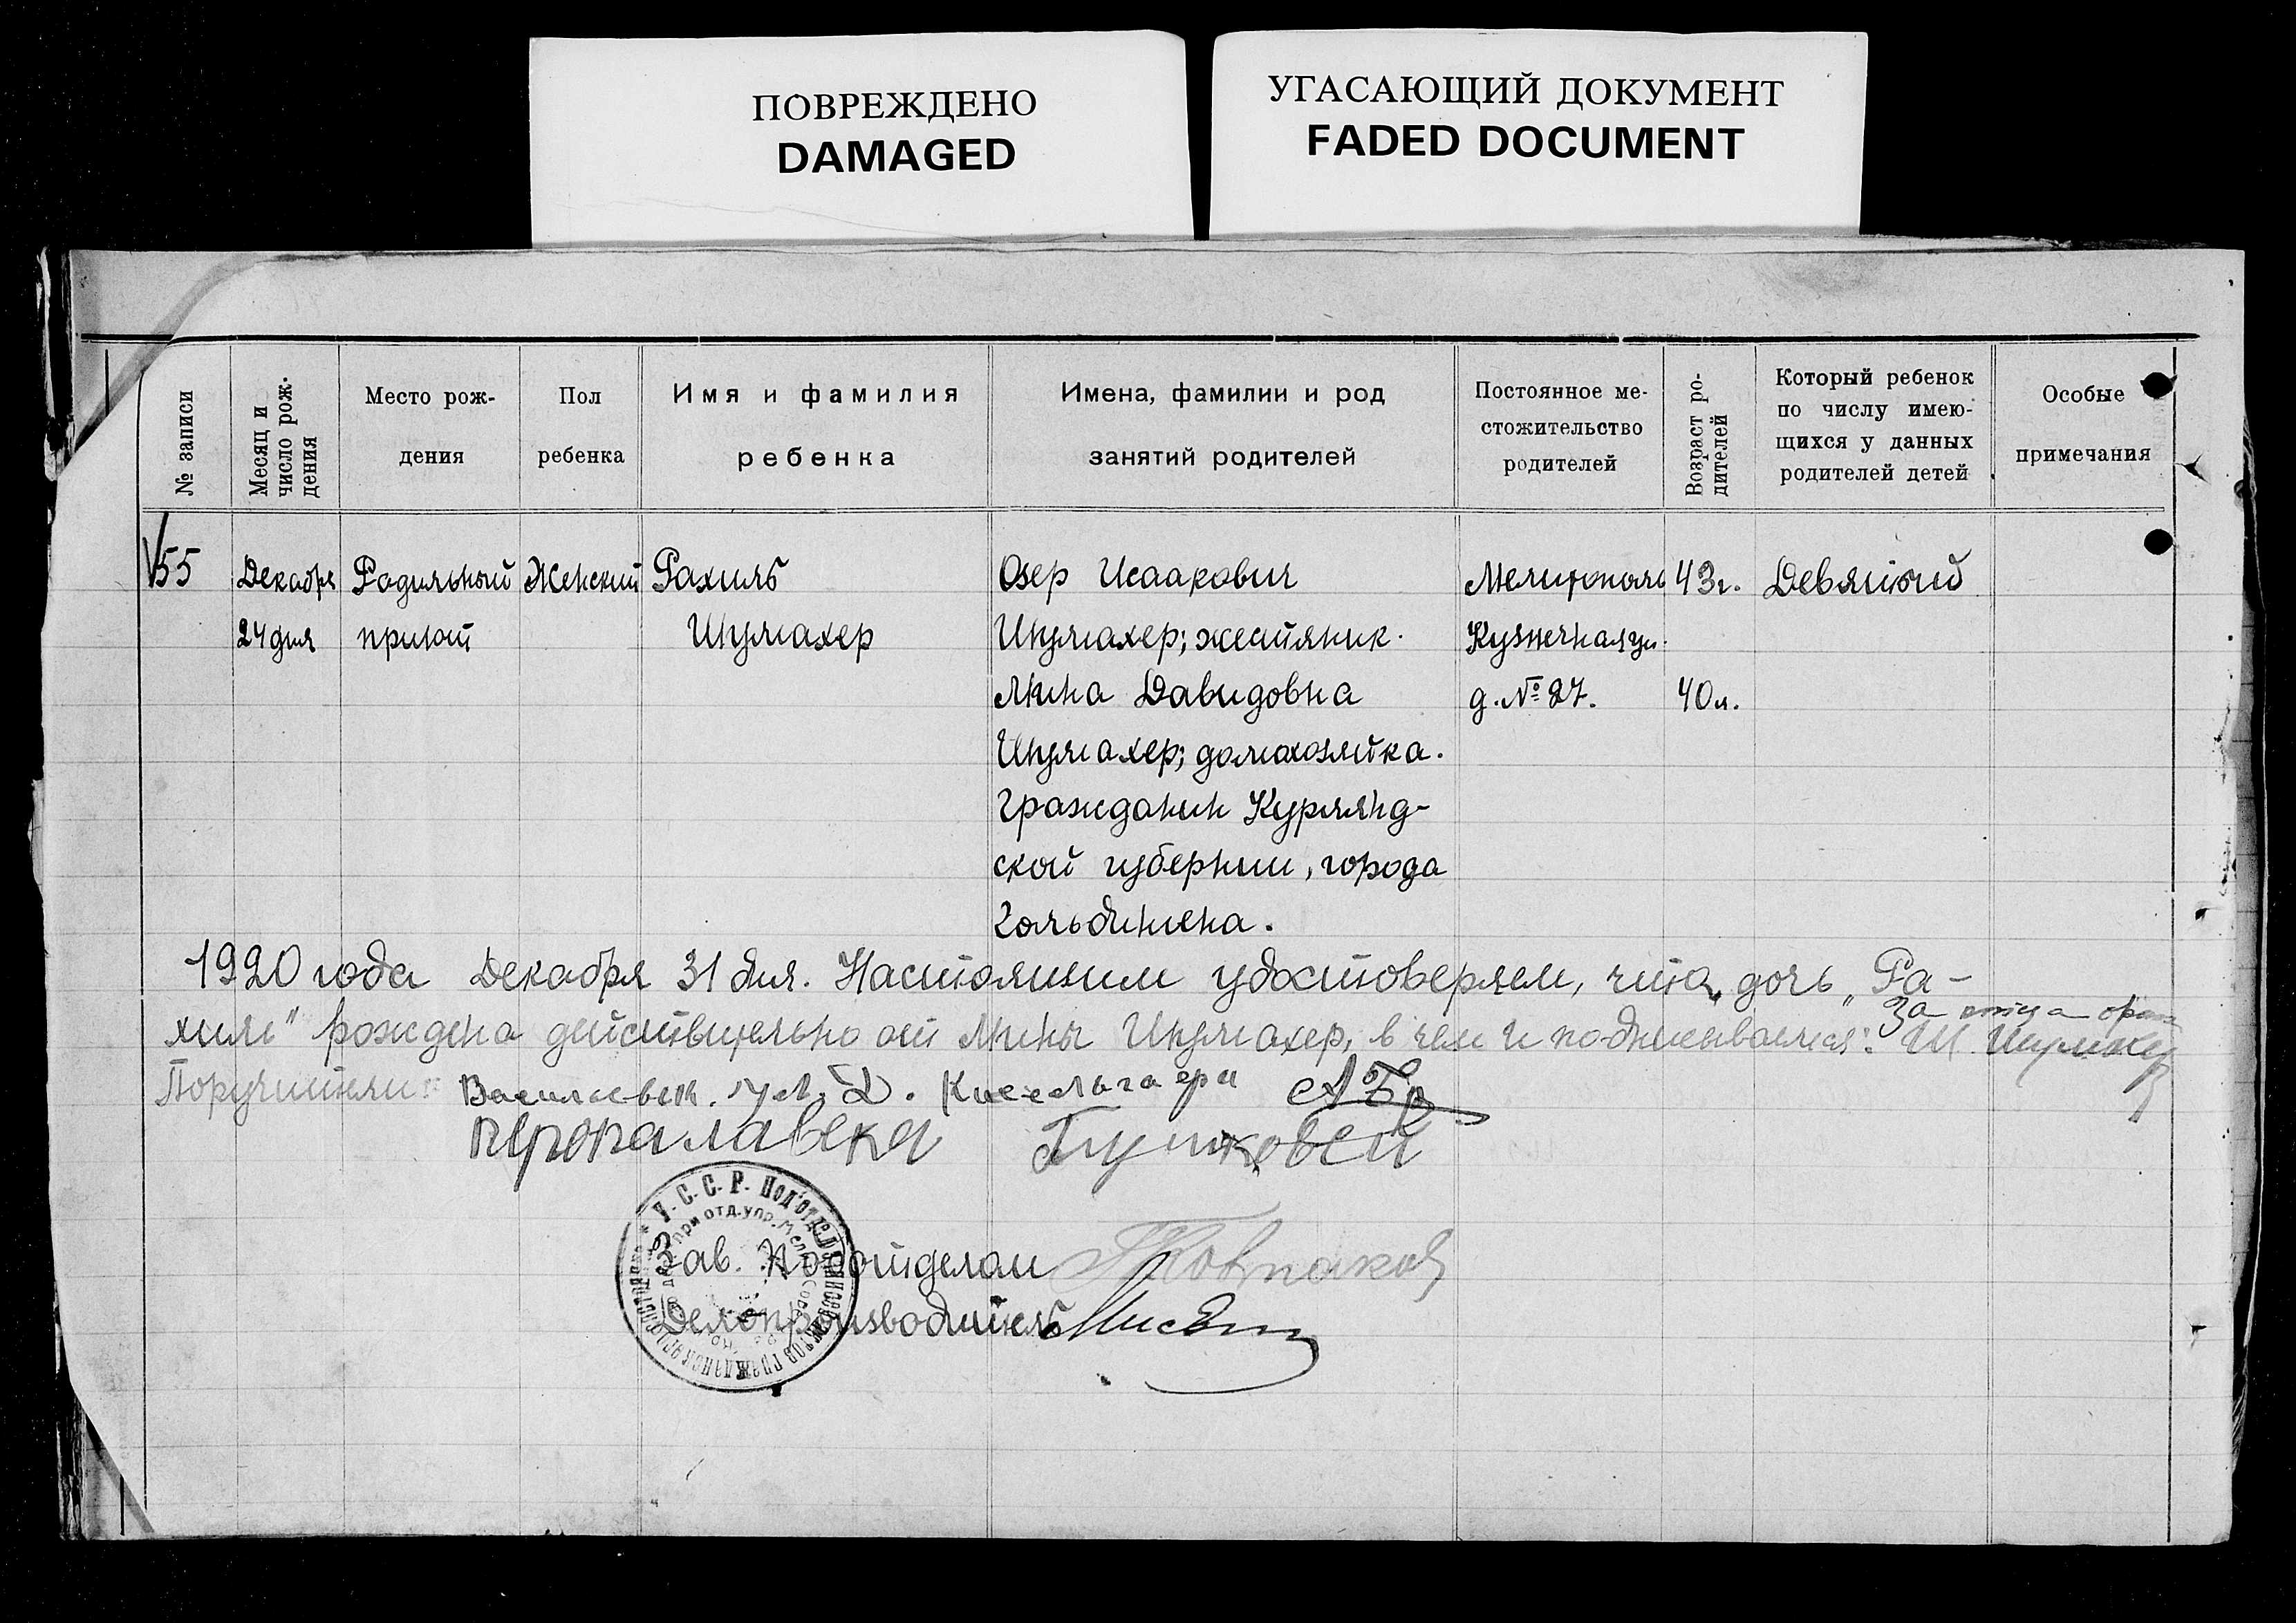 ПОВРЕЖДЕНО
DAMAGED
УГАСАЮЩИЙ ДОКУМЕНТ
FADED DOCUMENT
№ записи
Месяц и
число рож-
дения
Место рож-
дения
Пол
ребенка
Имя и фамилия
ребенка
Имена, фамилии и род
занятий родителей
Постоянное ме-
стожительство
родителей
Возраст ро-
дителей
Который ребенок
по числу имею-
щихся у данных
родителей детей
Особые
примечания
55
Декабря
24 дня
Родильный
приют
Женский
Рахиль
Шумахер
Озер Исаакович
Шумахер; жестяник.
Мина Давидовна
Шумахер; домохозяйка.
Гражданин Курлянд-
ской губернии, города
Гольдингена.
Мелитополь
Кузнечная ул.
д. № 27.
43 г.
40 л.
Девятый
1920 года Декабря 31 дня. Настоящим удостоверяем, что дочь „Ра-
хиль" рождена действительно от Мины Шумахер, в чем и подписываемся: За отца Ш. Шумахер
Поручители:
У.С.С.Р. Под'отдел записей актов гражданск
при отд. упр.
Зав. Подотделом
Делопроизводитель